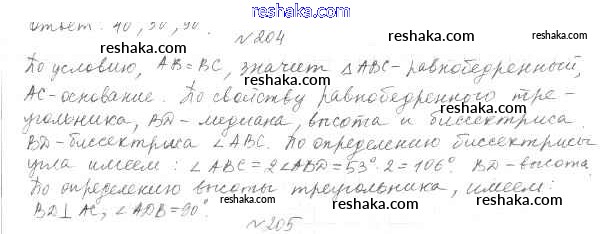 reshaka.com
ответ: 40, 90, 90.
№204
По условию, AB=BC, значит ΔABC - равнобедренный,
AC-основание. По свойству равнобедренного тре-
угольника, BD - медиана, высота и биссектриса
BD-биссектриса ∠ABC. По определению биссектрисы
угла имеем: ∠ABC=2∠ABD=53°·2=106°. BD-высота
По определению высоты треугольника, имеем:
BD⊥AC, ∠ADB=90°.
№205
reshaka.com
reshaka.com
reshaka.com
reshaka.com
reshaka.com
reshaka.com
reshaka.com
reshaka.com